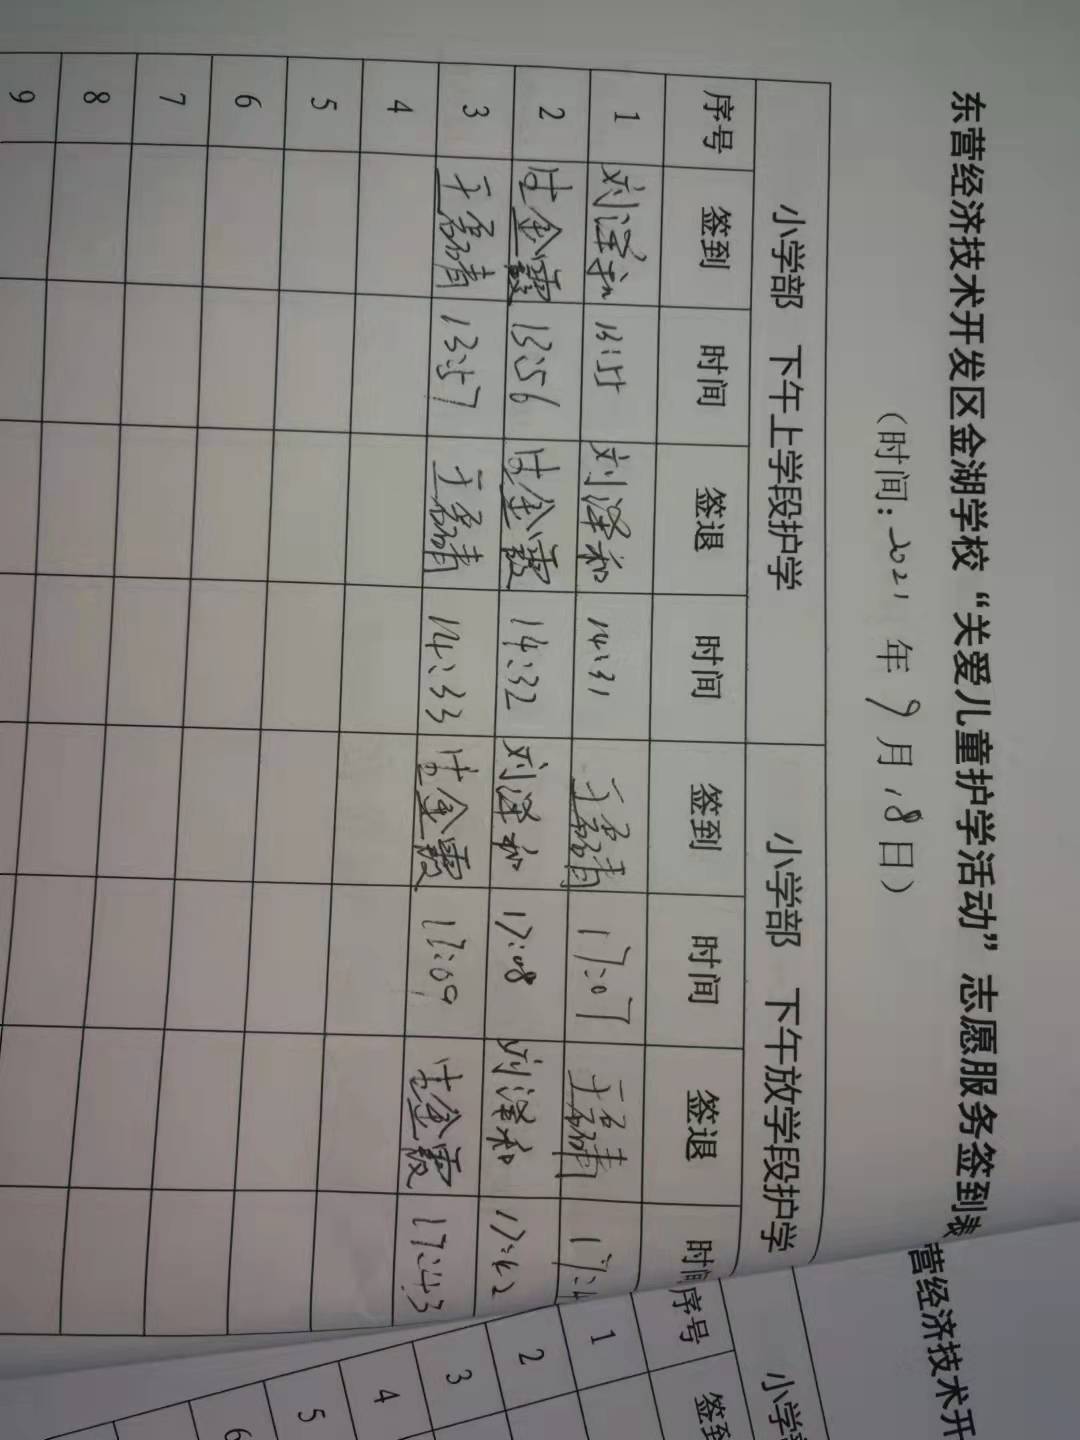 东营经济技术开发区金湖学校“关爱儿童护学活动”志愿服务签到表
（时间：2021年9月18日）
小学部 下午上学段护学 小学部 下午放学段护学
序号 签到 时间 签退 时间 签到 时间 签退 时间
1 刘泽和 13:55 刘泽和 14:31 17:07
2 金霞 13:56 金霞 14:32 刘泽和 17:08 刘泽和 17:42
3 13:57 14:33 金霞 17:09 金霞 17:43
4
5
6
7
8
9
营经济技术开
小学
序号 签到
1
2
3
4
5
6